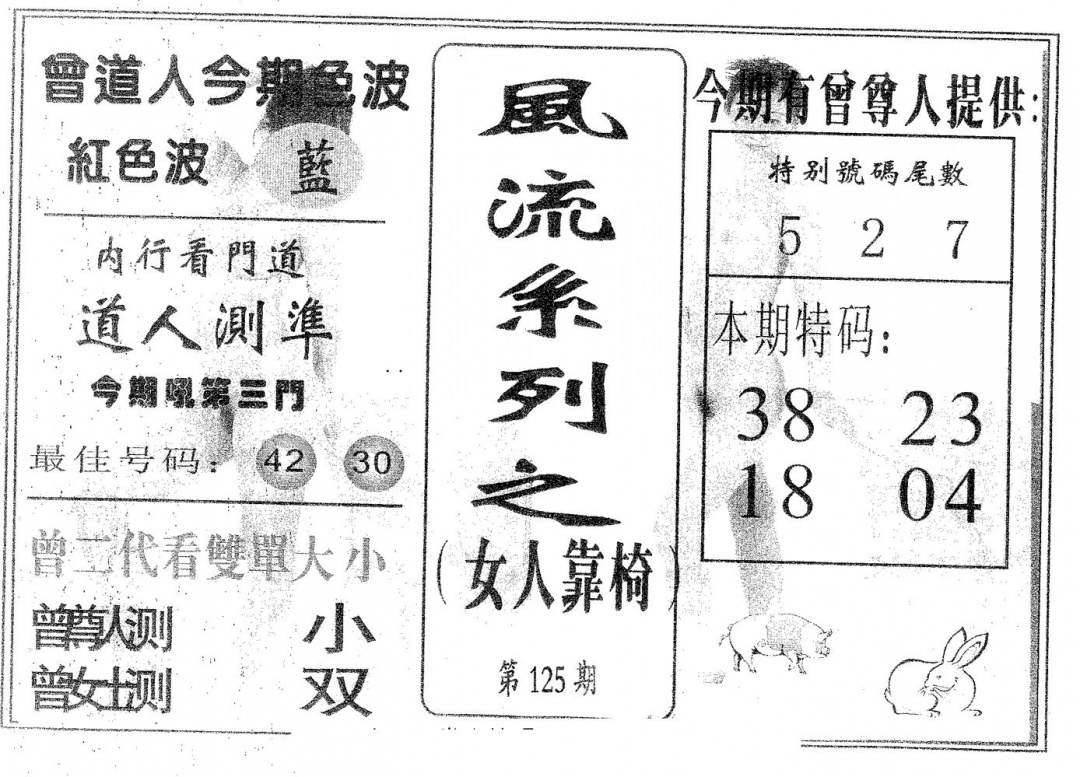 曾道人今期色波
紅色波 藍
内行看門道
道人測準
今期吼第三門
最佳号码： 42 30
曾二代看雙單大小
曾尊人测 小
曾女士测 双
風流系列之
（女人靠椅）
第125期
今期有曾尊人提供：
特别號碼尾數
5 2 7
本期特码：
38 23
18 04